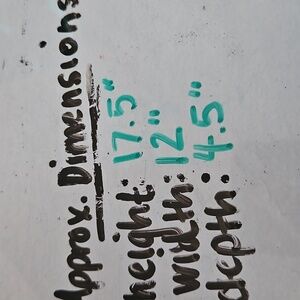 Approx. Dimensions
height: 17.5"
width: 12"
depth: 4.5"